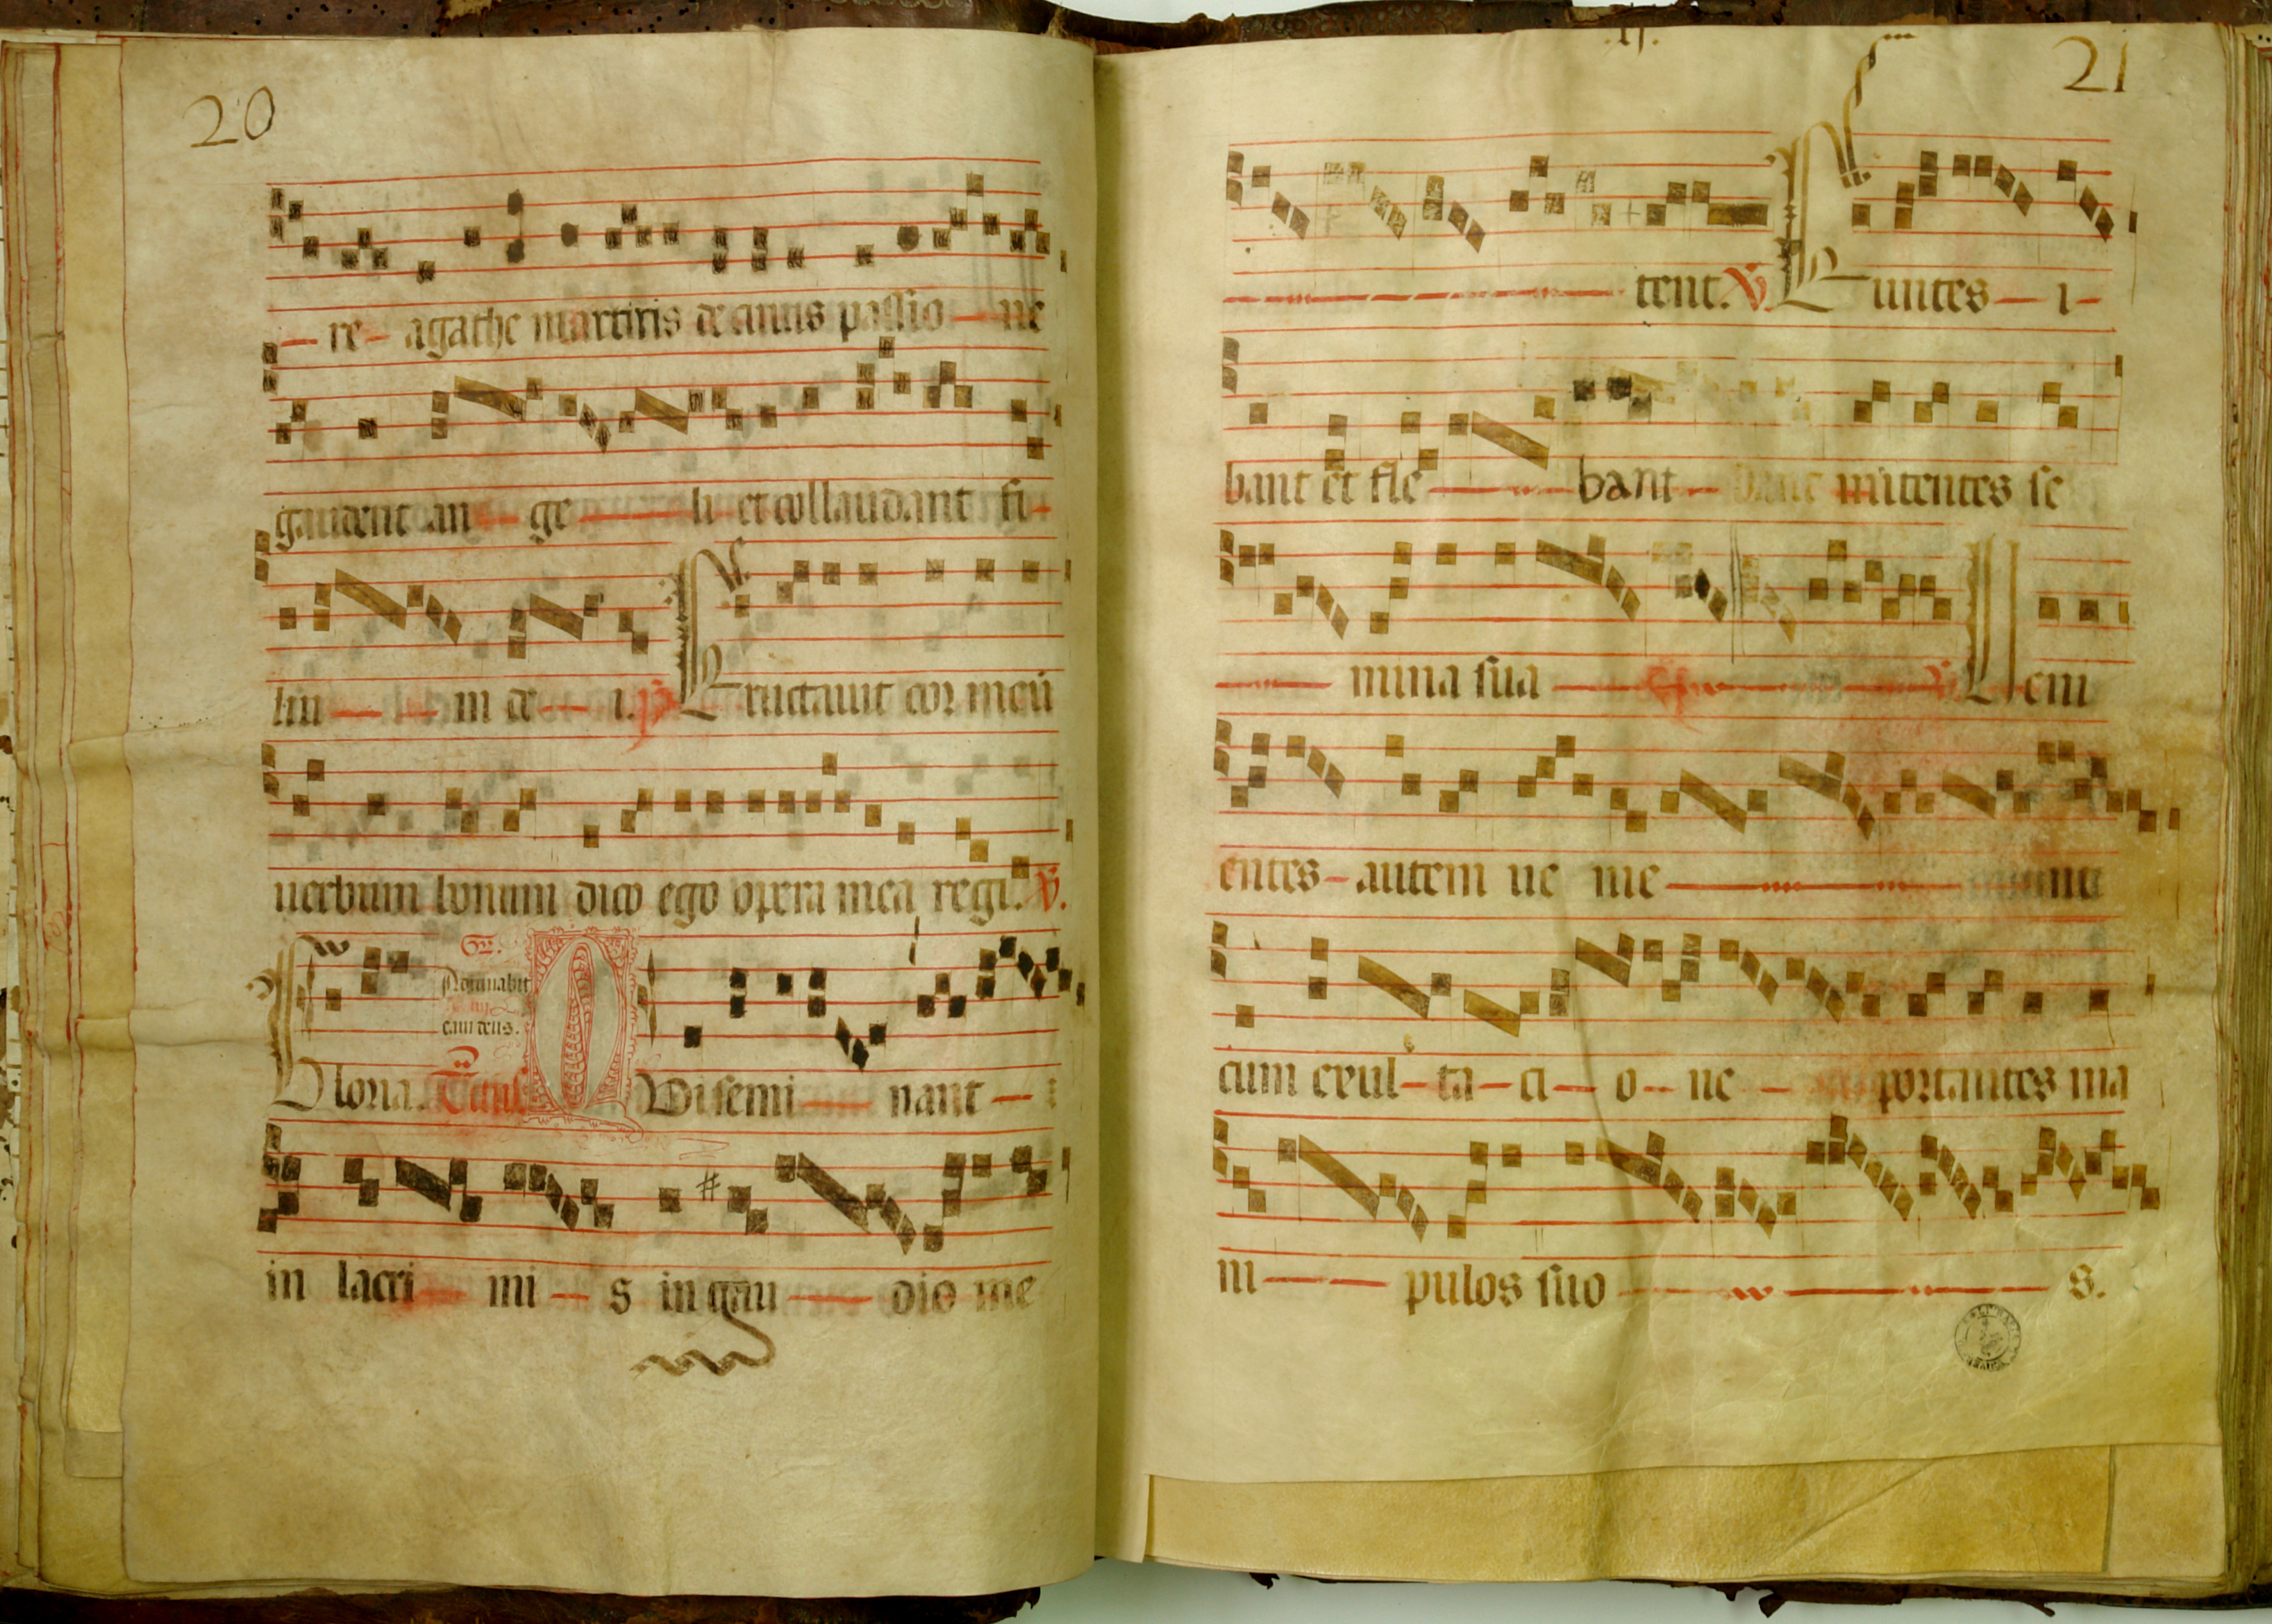 20
re agathe martiris de cuius passio ne
gaudent an ge li et collaudant fi
liu m de i. ps Eructauit cor meū
uerbum bonum dico ego opera mea regi. V.
Gloria. Tractus Qui semi nant
eam deus.
in lacri mi s in gau dio me
21
tent. V. Euntes i
bant et fle bant mittentes se
mina sua V. Ueni
entes autem ue ni e nt
cum exul ta ci o ne portantes ma
ni pulos suo s.